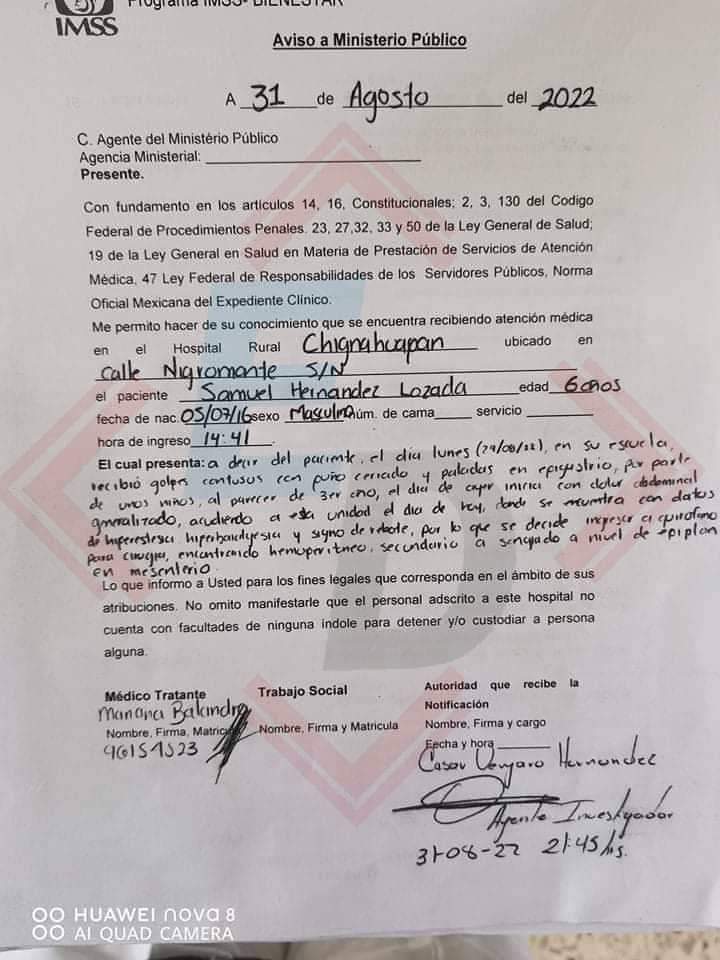 Programa IMSS-BIENESTAR
IMSS
Aviso a Ministerio Público
A 31 de Agosto del 2022
C. Agente del Ministério Público
Agencia Ministerial:
Presente.
Con fundamento en los articulos 14, 16, Constitucionales; 2, 3, 130 del Codigo
Federal de Procedimientos Penales. 23, 27,32, 33 y 50 de la Ley General de Salud;
19 de la Ley General en Salud en Materia de Prestación de Servicios de Atención
Médica, 47 Ley Federal de Responsabilidades de los Servidores Públicos, Norma
Oficial Mexicana del Expediente Clínico.
Me permito hacer de su conocimiento que se encuentra recibiendo atención médica
en el Hospital Rural Chignahuapan ubicado en
Calle Nigromante S/N
el paciente Samuel Hernandez Lozada edad 6 años
fecha de nac. 05/07/16 sexo Masculino núm. de cama servicio
hora de ingreso 14:41
El cual presenta: a decir del paciente, el dia lunes (29/08/22), en su escuela,
recibió golpes contusos con puño cerrado y patadas en epigastrio, por parte
de unos niños, al parecer de 3er año, el dia de ayer inicia con dolor abdominal
generalizado, acudiendo a esta unidad el dia de hoy, donde se muestra con datos
de hiperestesia hiperbaralgesia y signo de rebote, por lo que se decide ingresar a quirofano
para cirugia, encontrando hemoperitneo, secundario a sangrado a nivel de epiplon
en mesenterio.
Lo que informo a Usted para los fines legales que corresponda en el ámbito de sus
atribuciones. No omito manifestarle que el personal adscrito a este hospital no
cuenta con facultades de ninguna índole para detener y/o custodiar a persona
alguna.
Médico Tratante
Mariana
Nombre, Firma, Matricula
Trabajo Social
Nombre, Firma y Matricula
Autoridad que recibe la
Notificación
Nombre, Firma y cargo
Fecha y hora
Hernandez
Agente Investigador
31-08-22 21:45 hs.
HUAWEI nova 8
AI QUAD CAMERA